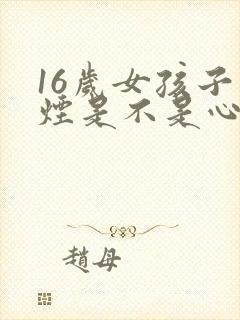 16歲女孩子
煙是不是心
趙母